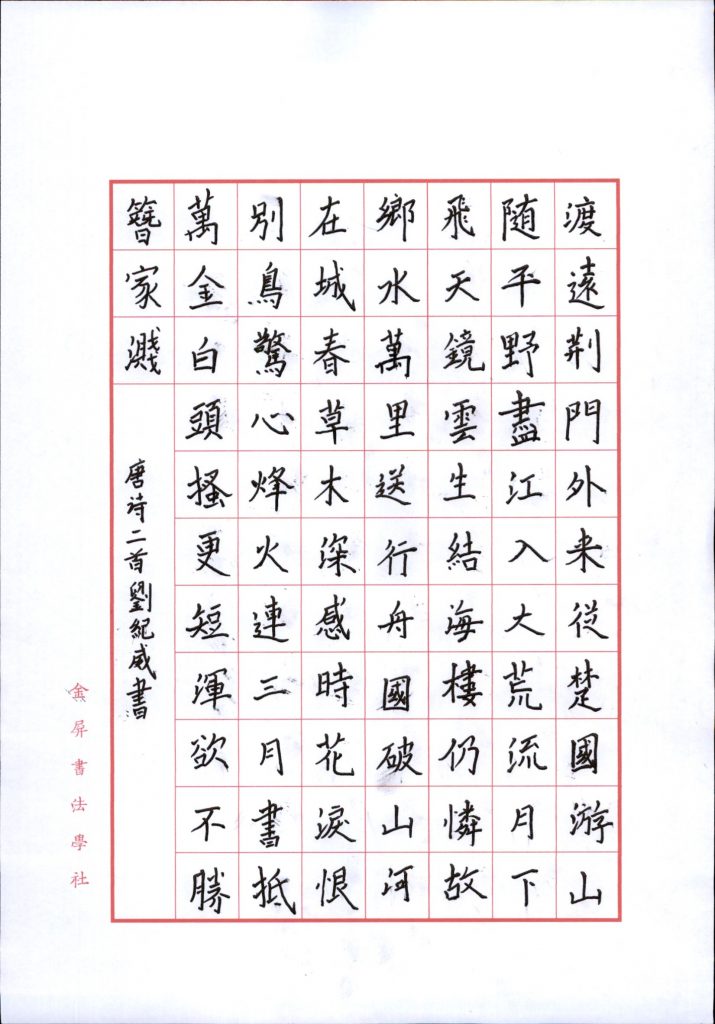 渡遠荆門外来從楚國游山
随平野盡江入大荒流月下
飛天鏡雲生結海樓仍憐故
鄉水萬里送行舟國破山河
在城春草木深感時花淚恨
别鳥驚心烽火連三月書抵
萬金白頭搔更短渾欲不勝
簪家濺
唐诗二首劉紀威書
金屏書法學社